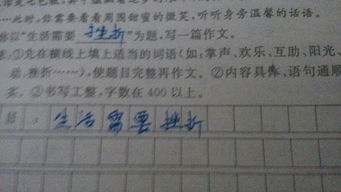 此时,你需要看看周围甜蜜的微笑,听听身旁温馨的话语。
以“生活需要 挫折 ”为题,写一篇作文。
①先在横线上填上适当的词语(如:掌声、欢乐、互助、阳光、
挫折……),使题目完整再作文。②内容具体、语句通顺
③书写工整,字数在400以上。
生活需要挫折